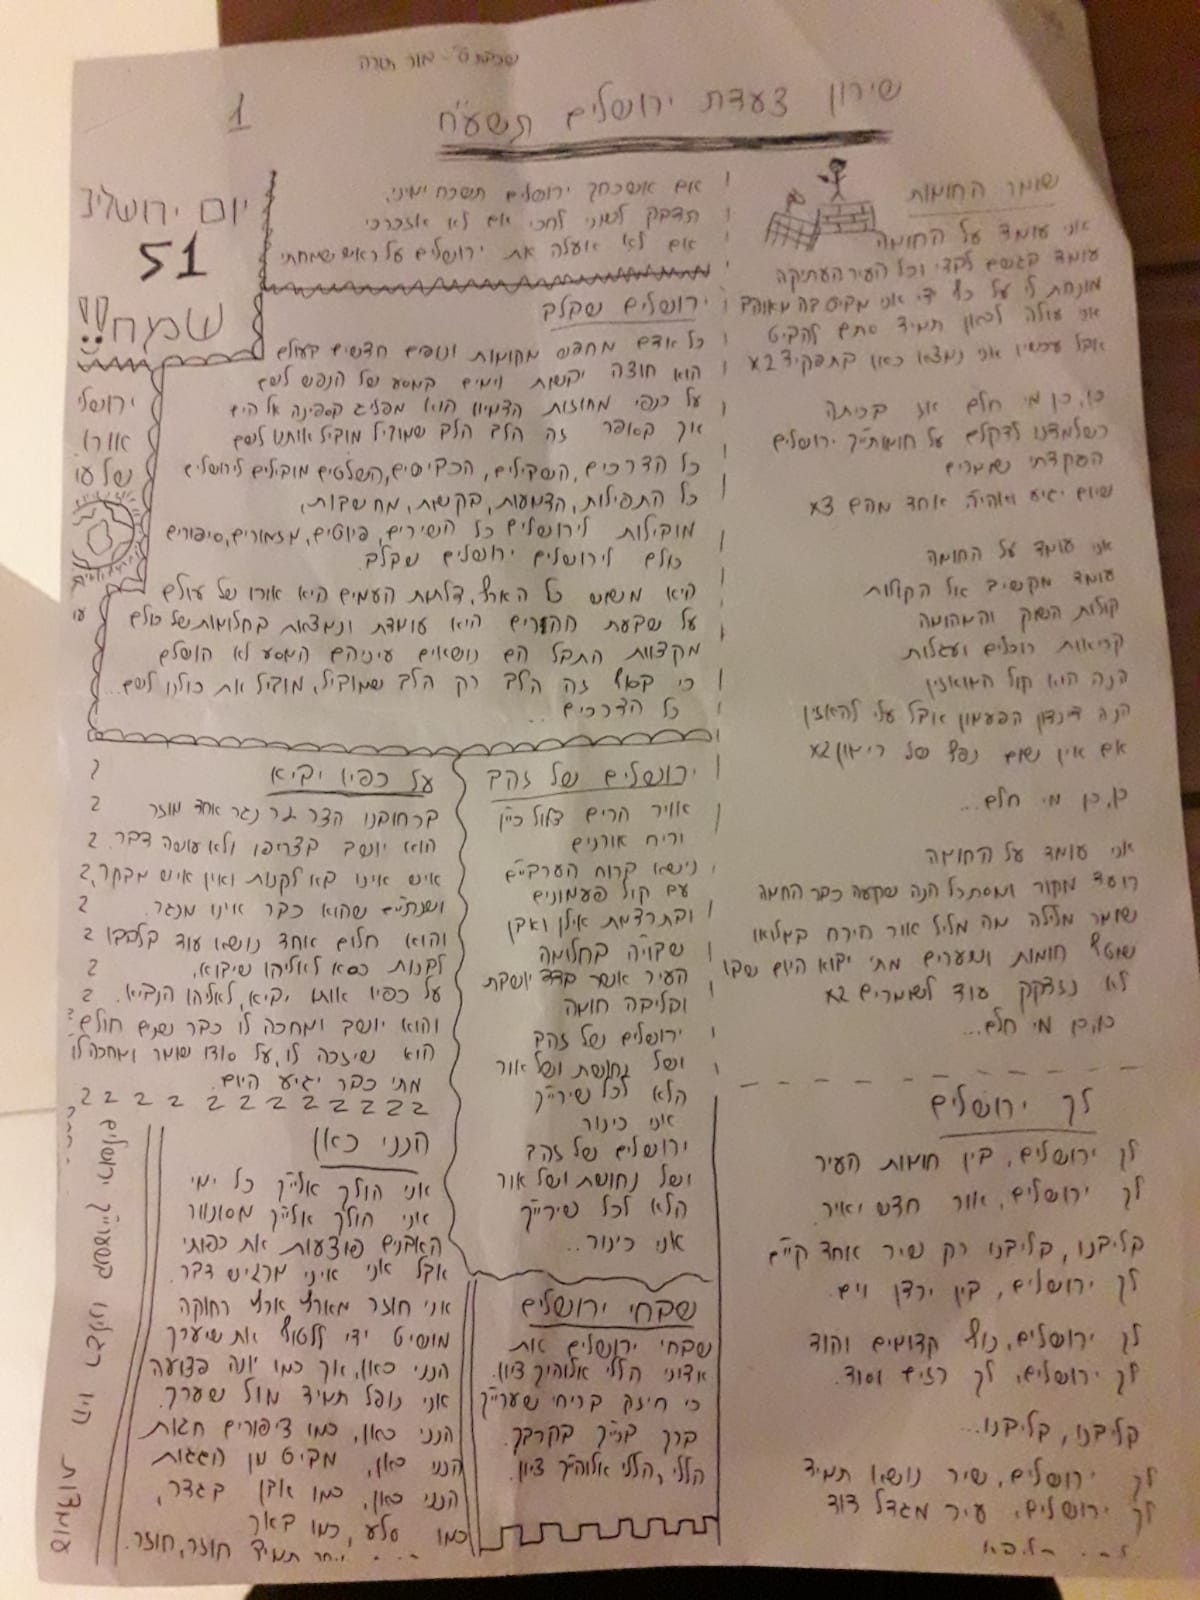 שירון צעדת ירושלים תשע"ח
1
שומר החומות
אני עומד על החומה
עומד בגשם לבדי וכל העיר העתיקה
מונחת לי על כף יד אני מביט בה מאוהב
אני עולה לכאן תמיד סתם להביט
אבל עכשיו אני נמצא כאן בתפקיד x2
כן, כן מי חלם אז בכיתה
כשלמדנו לדקלם על חומותייך ירושלים
הפקדתי שומרים
שיום יגיע ואהיה אחד מהם x3
אני עומד על החומה
עומד מקשיב אל הקולות
קולות השוק והמהומה
קריאות רוכלים ועגלות
הנה הוא קול המואזין
הנה דינדון הפעמון אבל עלי להאזין
אם אין שום נפץ של רימון x2
כן, כן מי חלם...
אני עומד על החומה
רועד מקור ומסתכל הנה שקעה כבר החמה
שומר מלילה מה מליל אור הירח במלואו
שוטף חומות ושערים מתי יבוא היום שבו
לא נזדקק עוד לשומרים x2
כן, כן מי חלם...
לך ירושלים
לך ירושלים, בין חומות העיר
לך ירושלים, אור חדש יאיר.
בליבנו, בליבנו רק שיר אחד קיים
לך ירושלים, בין ירדן וים.
לך ירושלים, נוף קדומים והוד
לך ירושלים, לך רזים וסוד.
בליבנו, בליבנו...
לך ירושלים, שיר נושא תמיד
לך ירושלים, עיר מגדל דוד
אם אשכחך ירושלים תשכח ימיני,
תדבק לשוני לחכי אם לא אזכרכי
אם לא אעלה את ירושלים על ראש שמחתי
ירושלים שבלב
כל אדם מחפש מקומות ונופים חדשים בעולם
הוא חוצה יבשות וימים במסע של הנפש לשם
על כנפי מחוזות הדמיון הוא מפליג בספינה אל הים
אך בסופו זה הלב הלב שמוביל מוביל אותנו לשם
כל הדרכים, השבילים, הכבישים, השלטים מובילים לירושלים
כל התפילות, הדמעות, בקשות, מחשבות,
מובילות לירושלים כל השירים, פיוטים, מזמורים, סיפורים
כולם לירושלים ירושלים שבלב.
היא משוש כל הארץ, דלתות העמים היא אורו של עולם
על שבעת ההרים היא עומדת ונמצאת בחלומות של כולם
מקצוות התבל הם נושאים עיניהם המסע לא הושלם
כי בסוף זה הלב רק הלב שמוביל, מוביל את כולנו לשם...
כל הדרכים...
יום ירושלים
51
שמח!!
ירושלי
אורו
של עו
ירושלים של זהב
אוויר הרים צלול כיין
וריח אורנים
נישא ברוח הערביים
עם קול פעמונים
ובתרדמת אילן ואבן
שבויה בחלומה
העיר אשר בדד יושבת
ובליבה חומה
ירושלים של זהב
ושל נחושת ושל אור
הלא לכל שירייך
אני כינור
ירושלים של זהב
ושל נחושת ושל אור
הלא לכל שירייך
אני כינור...
על כפיו יביא
ברחובנו הצר גר נגר אחד מוזר
הוא יושב בצריפו ולא עושה דבר.
איש אינו בא לקנות ואין איש מבקר,
ושנתיים שהוא כבר אינו מנגר.
והוא חלום אחד נושא עוד בלבבו
לבנות כסא לאליהו שיבוא,
על כפיו אותו יביא, לאליהו הנביא.
והוא יושב ומחכה לו כבר שנים חולם
הוא שיזכה לו, על סודו שומר ומחכה לו
מתי כבר יגיע היום.
הנני כאן
אני הולך אלייך כל ימי
אני הולך אלייך מסונוור
האבנים פוצעות את כפותי
אבל אני איני מרגיש דבר.
אני חוזר מארץ ארץ רחוקה
מושיט ידי ללטוף את שיערך
הנני כאן, אך כמו יונה פצועה
אני נופל תמיד מול שערך.
הנני כאן, כמו ציפורים חגות
הנני כאן, מביט מן הגגות
הנני כאן, כמו אבן בגדר,
כמו סלע, כמו באר
תמיד חוזר, חוזר.
שבחי ירושלים
שבחי ירושלים את
אדוני הללי אלוהיך ציון.
כי חיזק בריחי שערייך
ברך בנייך בקרבך.
הללי, הללי אלוהייך ציון.